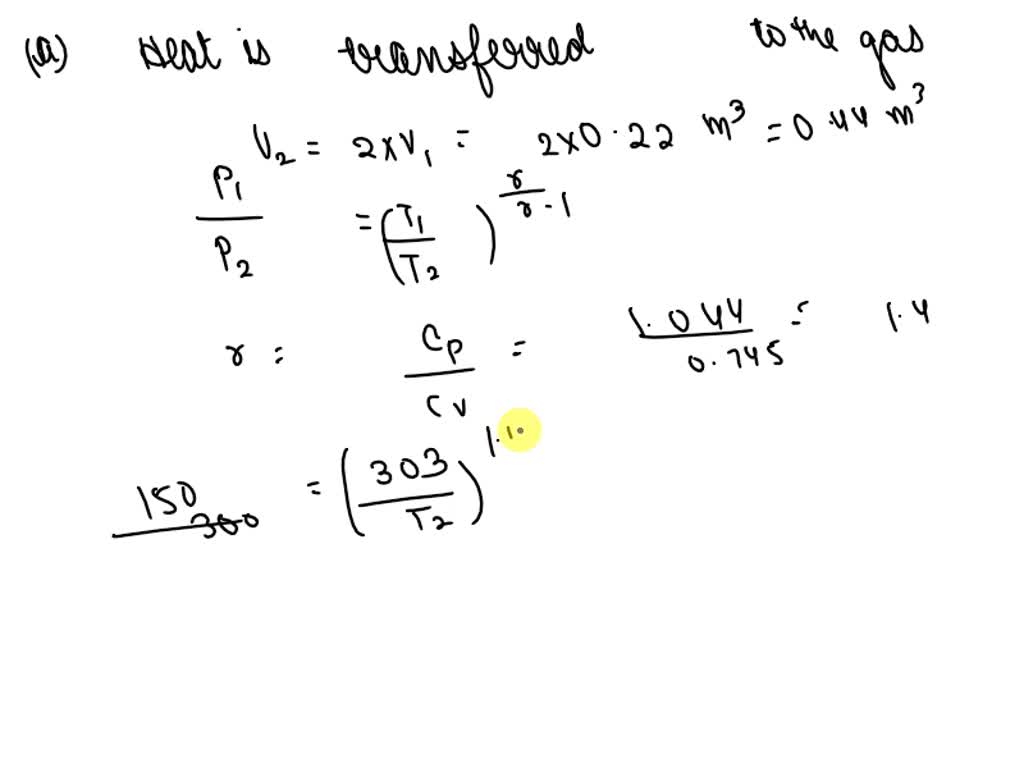 (a) Heat is transferred to the gas
V2 = 2×V1 = 2×0.22 m³ = 0.44 m³
P1/P2 = (T1/T2)^(γ/γ-1)
γ = Cp/Cv = 1.044/0.745 = 1.4
150/300 = (303/T2)^1.1